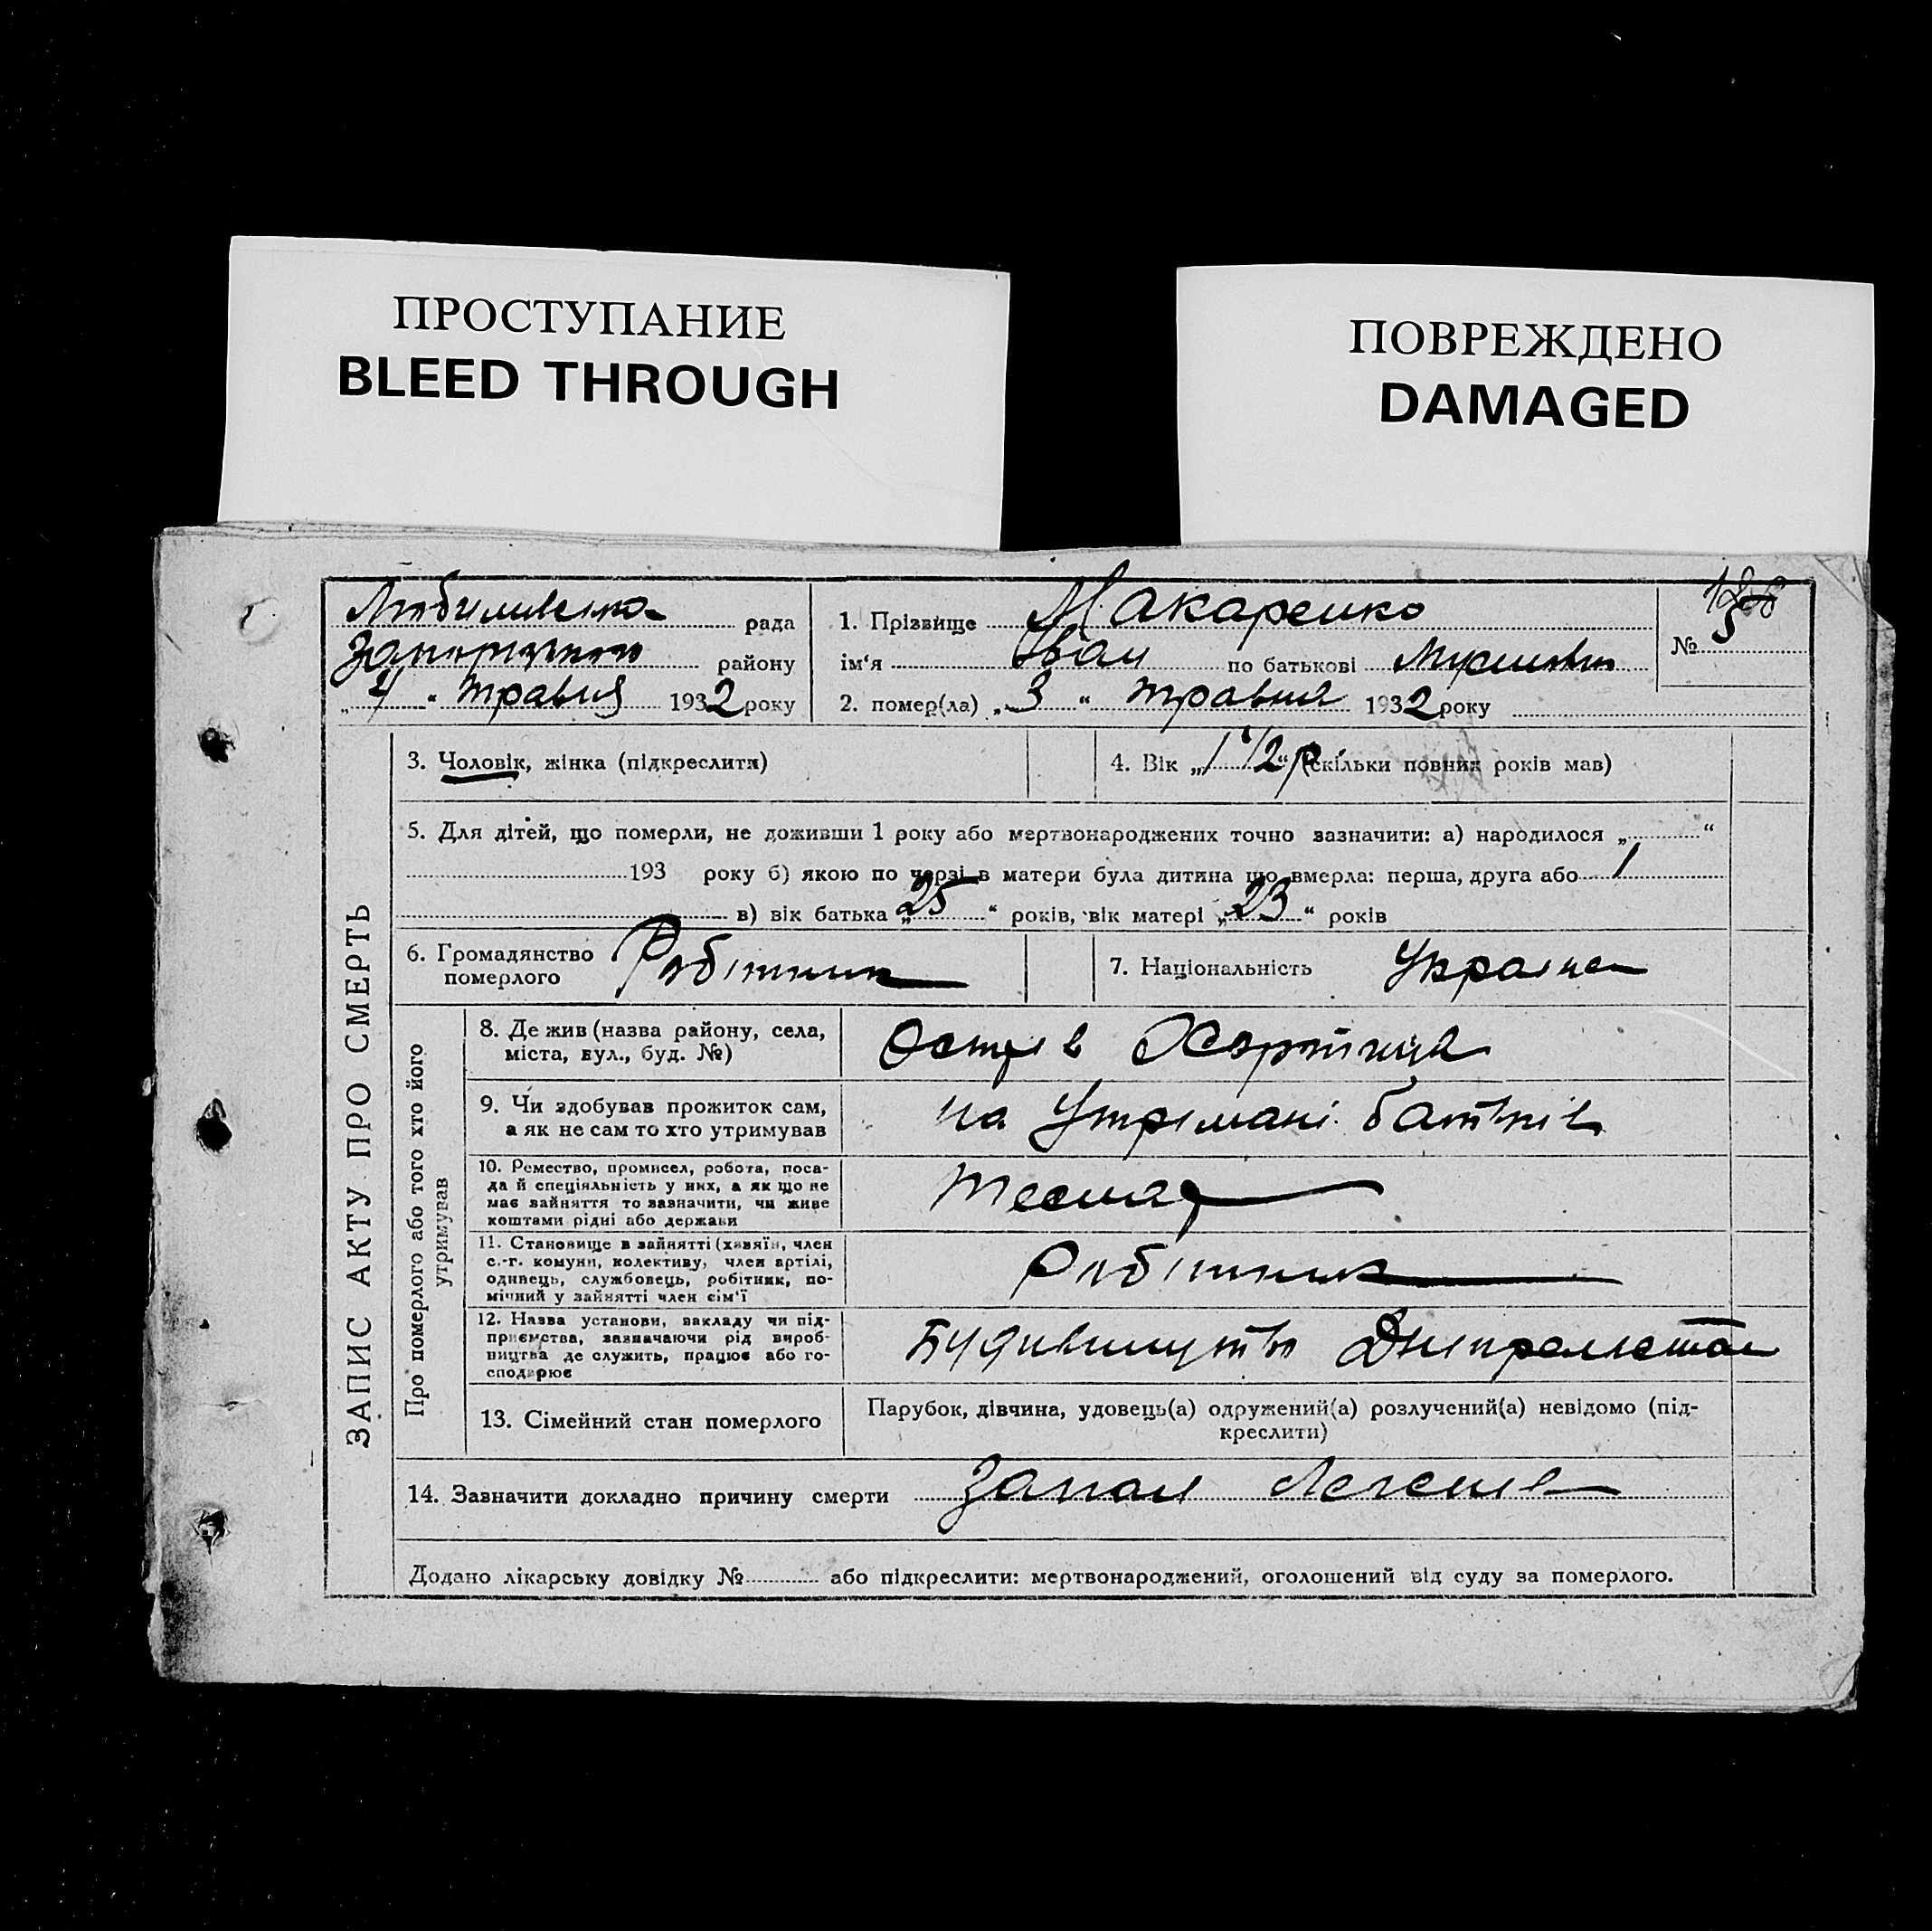 ПРОСТУПАНИЕ
BLEED THROUGH
ПОВРЕЖДЕНО
DAMAGED
рада
району
„ 4 “ травня 1932 року
1. Прізвище Макаренко
ім‘я Іван по батькові
2. помер(ла) „ 3 “ травня 1932 року
№ 5
ЗАПИС АКТУ ПРО СМЕРТЬ
3. Чоловік, жінка (підкреслити)
4. Вік „ 1 1/2 “ р (скільки повних років мав)
5. Для дітей, що померли, не доживши 1 року або мертвонароджених точно зазначити: а) народилося „ “
193 року б) якою по черзі в матери була дитина що вмерла: перша, друга або 1
в) вік батька „ 25 “ років, вік матері „ 23 “ років
6. Громадянство
померлого
Робітник
7. Національність
Українец
Про померлого або того хто його
утримував
8. Де жив (назва району, села,
міста, вул., буд. №)
Острів Хортиця
9. Чи здобував прожиток сам,
а як не сам то хто утримував
на Утримані батьків
10. Ремество, промисел, робота, поса-
да й спеціяльність у них, а як що не
має зайняття то зазначити, чи живе
коштами рідні або держави
Тесляр
11. Становище в зайнятті (хазяїн, член
с.-г. комуни, колективу, член артілі,
одинець, службовець, робітник, по-
мічний у зайнятті член сім‘ї
Робітник
12. Назва установи, закладу чи під-
приємства, зазначаючи рід вироб-
ництва де служить, працює або го-
сподарює
13. Сімейний стан померлого
Парубок, дівчина, удовець(а) одружений(а) розлучений(а) невідомо (під-
креслити)
14. Зазначити докладно причину смерти Запал Легенів
Додано лікарську довідку № або підкреслити: мертвонароджений, оголошений від суду за померлого.